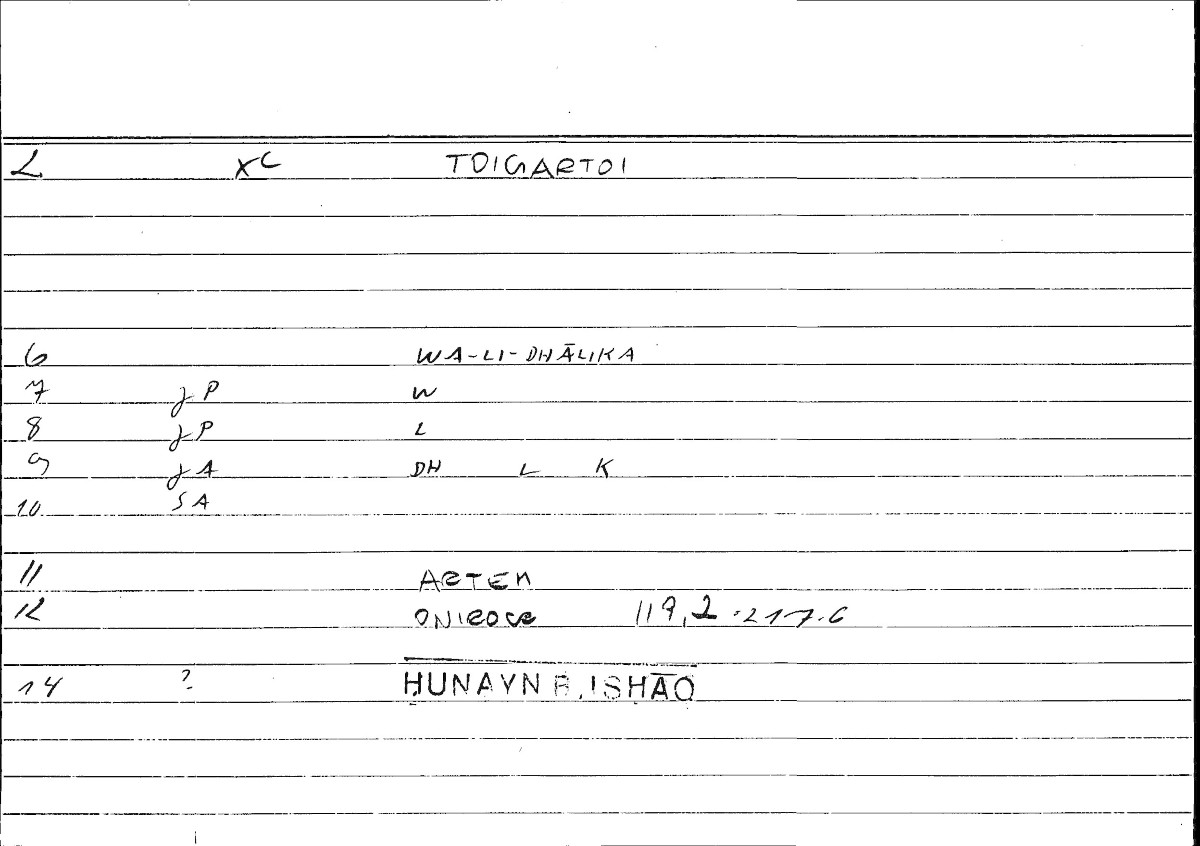 2 XC TOIGARTOI
6 WA-LI-DHĀLIKA
7 JP W
8 JP L
9 JA DH L K
10 SA
11 ARTEM
12 ONIROCR 119,2 · 217.6
14 ? ḤUNAYN B. ISḤĀQ